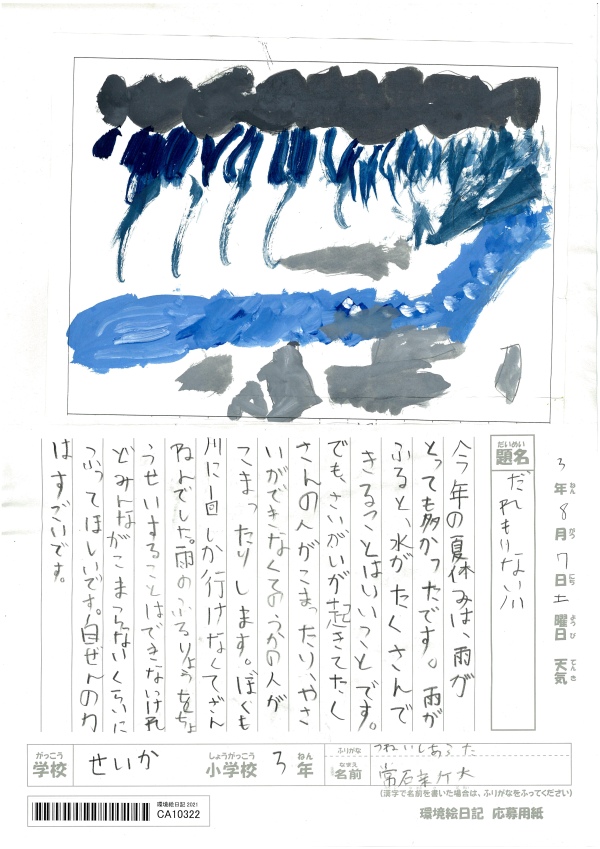 3年8月7日土曜日 天気
ねん がつ にち ようび てんき
だいめい
題名 だれもいない川
今年の夏休みは、雨が
とっても多かったです。雨が
ふると、水がたくさんで
きることはいいことです。
でも、さいがいが起きてたく
さんの人がこまったり、やさ
いができなくてのうかの人が
こまったりします。ぼくも
川に一回しか行けなくてざん
ねんでした。雨のふるりょうをちょ
うせいすることはできないけれ
どみんながこまらないくらいに
ふってほしいです。自ぜんの力
はすごいです。
がっこう しょうがっこう ねん
学校 せいか 小学校 3年
ふりがな つねいしあらた
なまえ
名前 常石
(漢字で名前を書いた場合は、ふりがなをふってください)
環境絵日記 2021
CA10322
環境絵日記 応募用紙